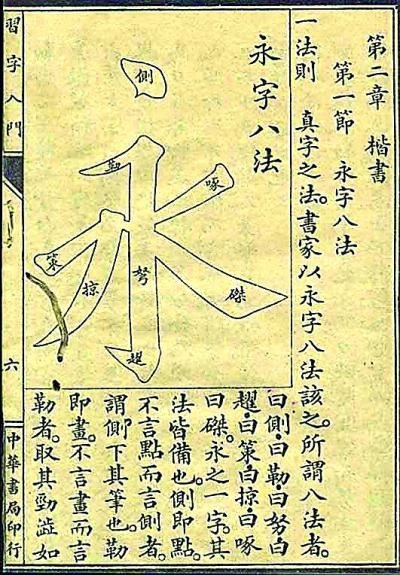 第二章 楷書
第一節 永字八法
一法則 真字之法。書家以永字八法該之。所謂八法者。
永字八法
側
勒
啄
策
掠
努
磔
趯
曰側·曰勒曰努·曰
趯·曰策·曰掠·曰啄
曰磔。永之一字。其
法皆備也。側即點。
不言點而言側者。
謂側下其筆也。勒
即畫。不言畫而言
勒者。取其勁澁如
習字入門
六
中華書局印行